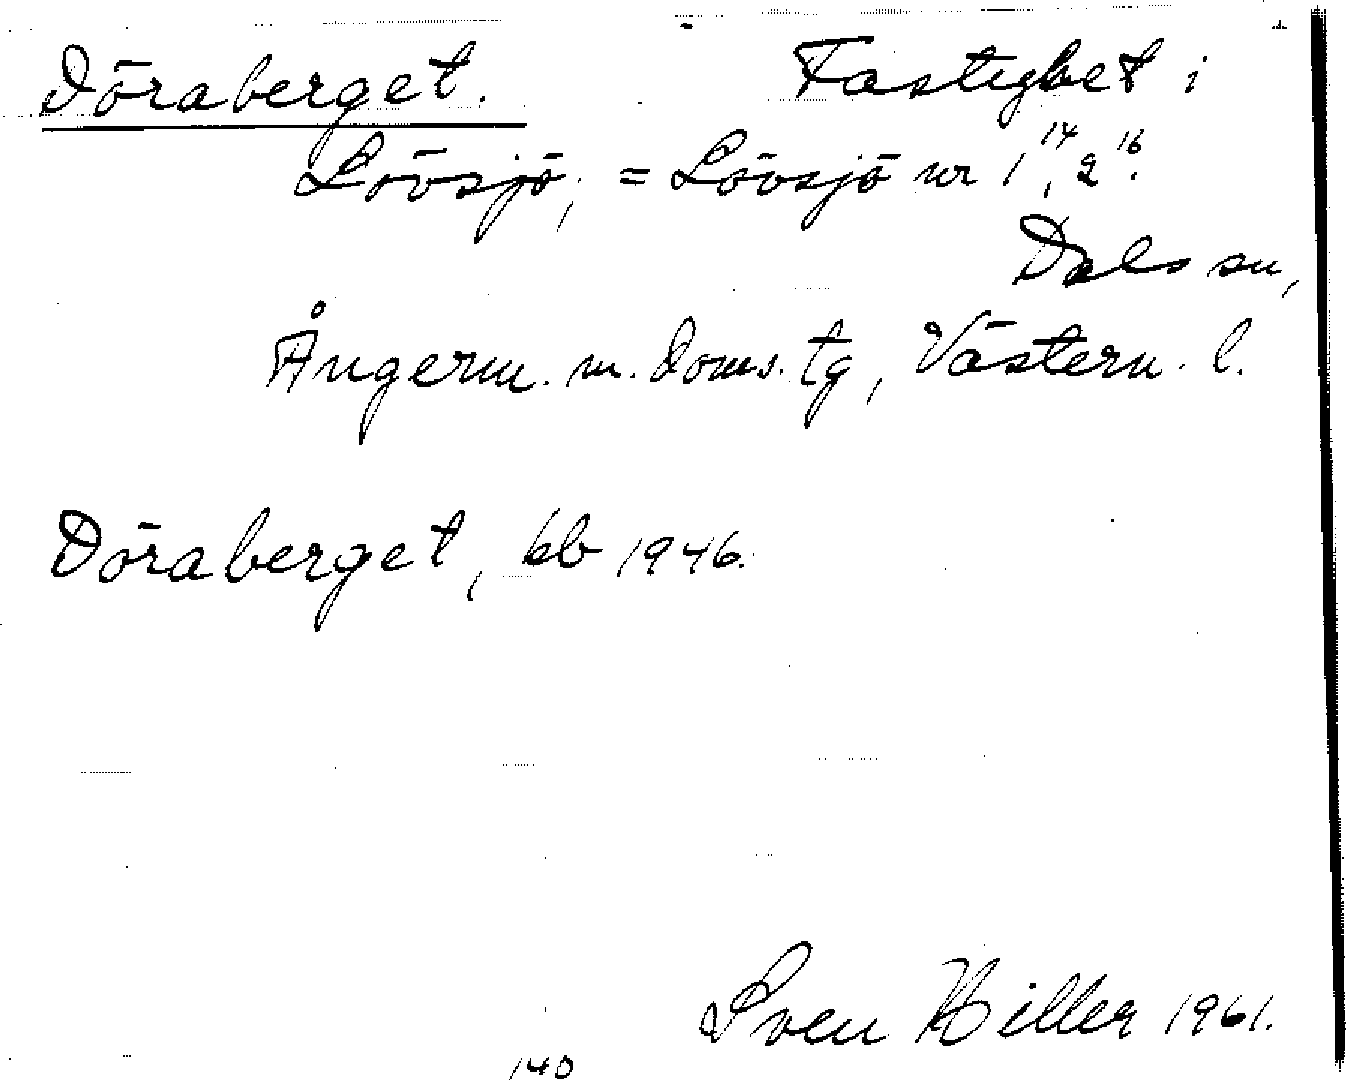 Döraberget. Fastighet i
Lövsjö, = Lövsjö nr 1¹⁴, 2¹⁶.
Dals sn,
Ångerm. m. doms. tg, Västern. l.
Döraberget, kb 1946.
Sven Hiller 1961.
140